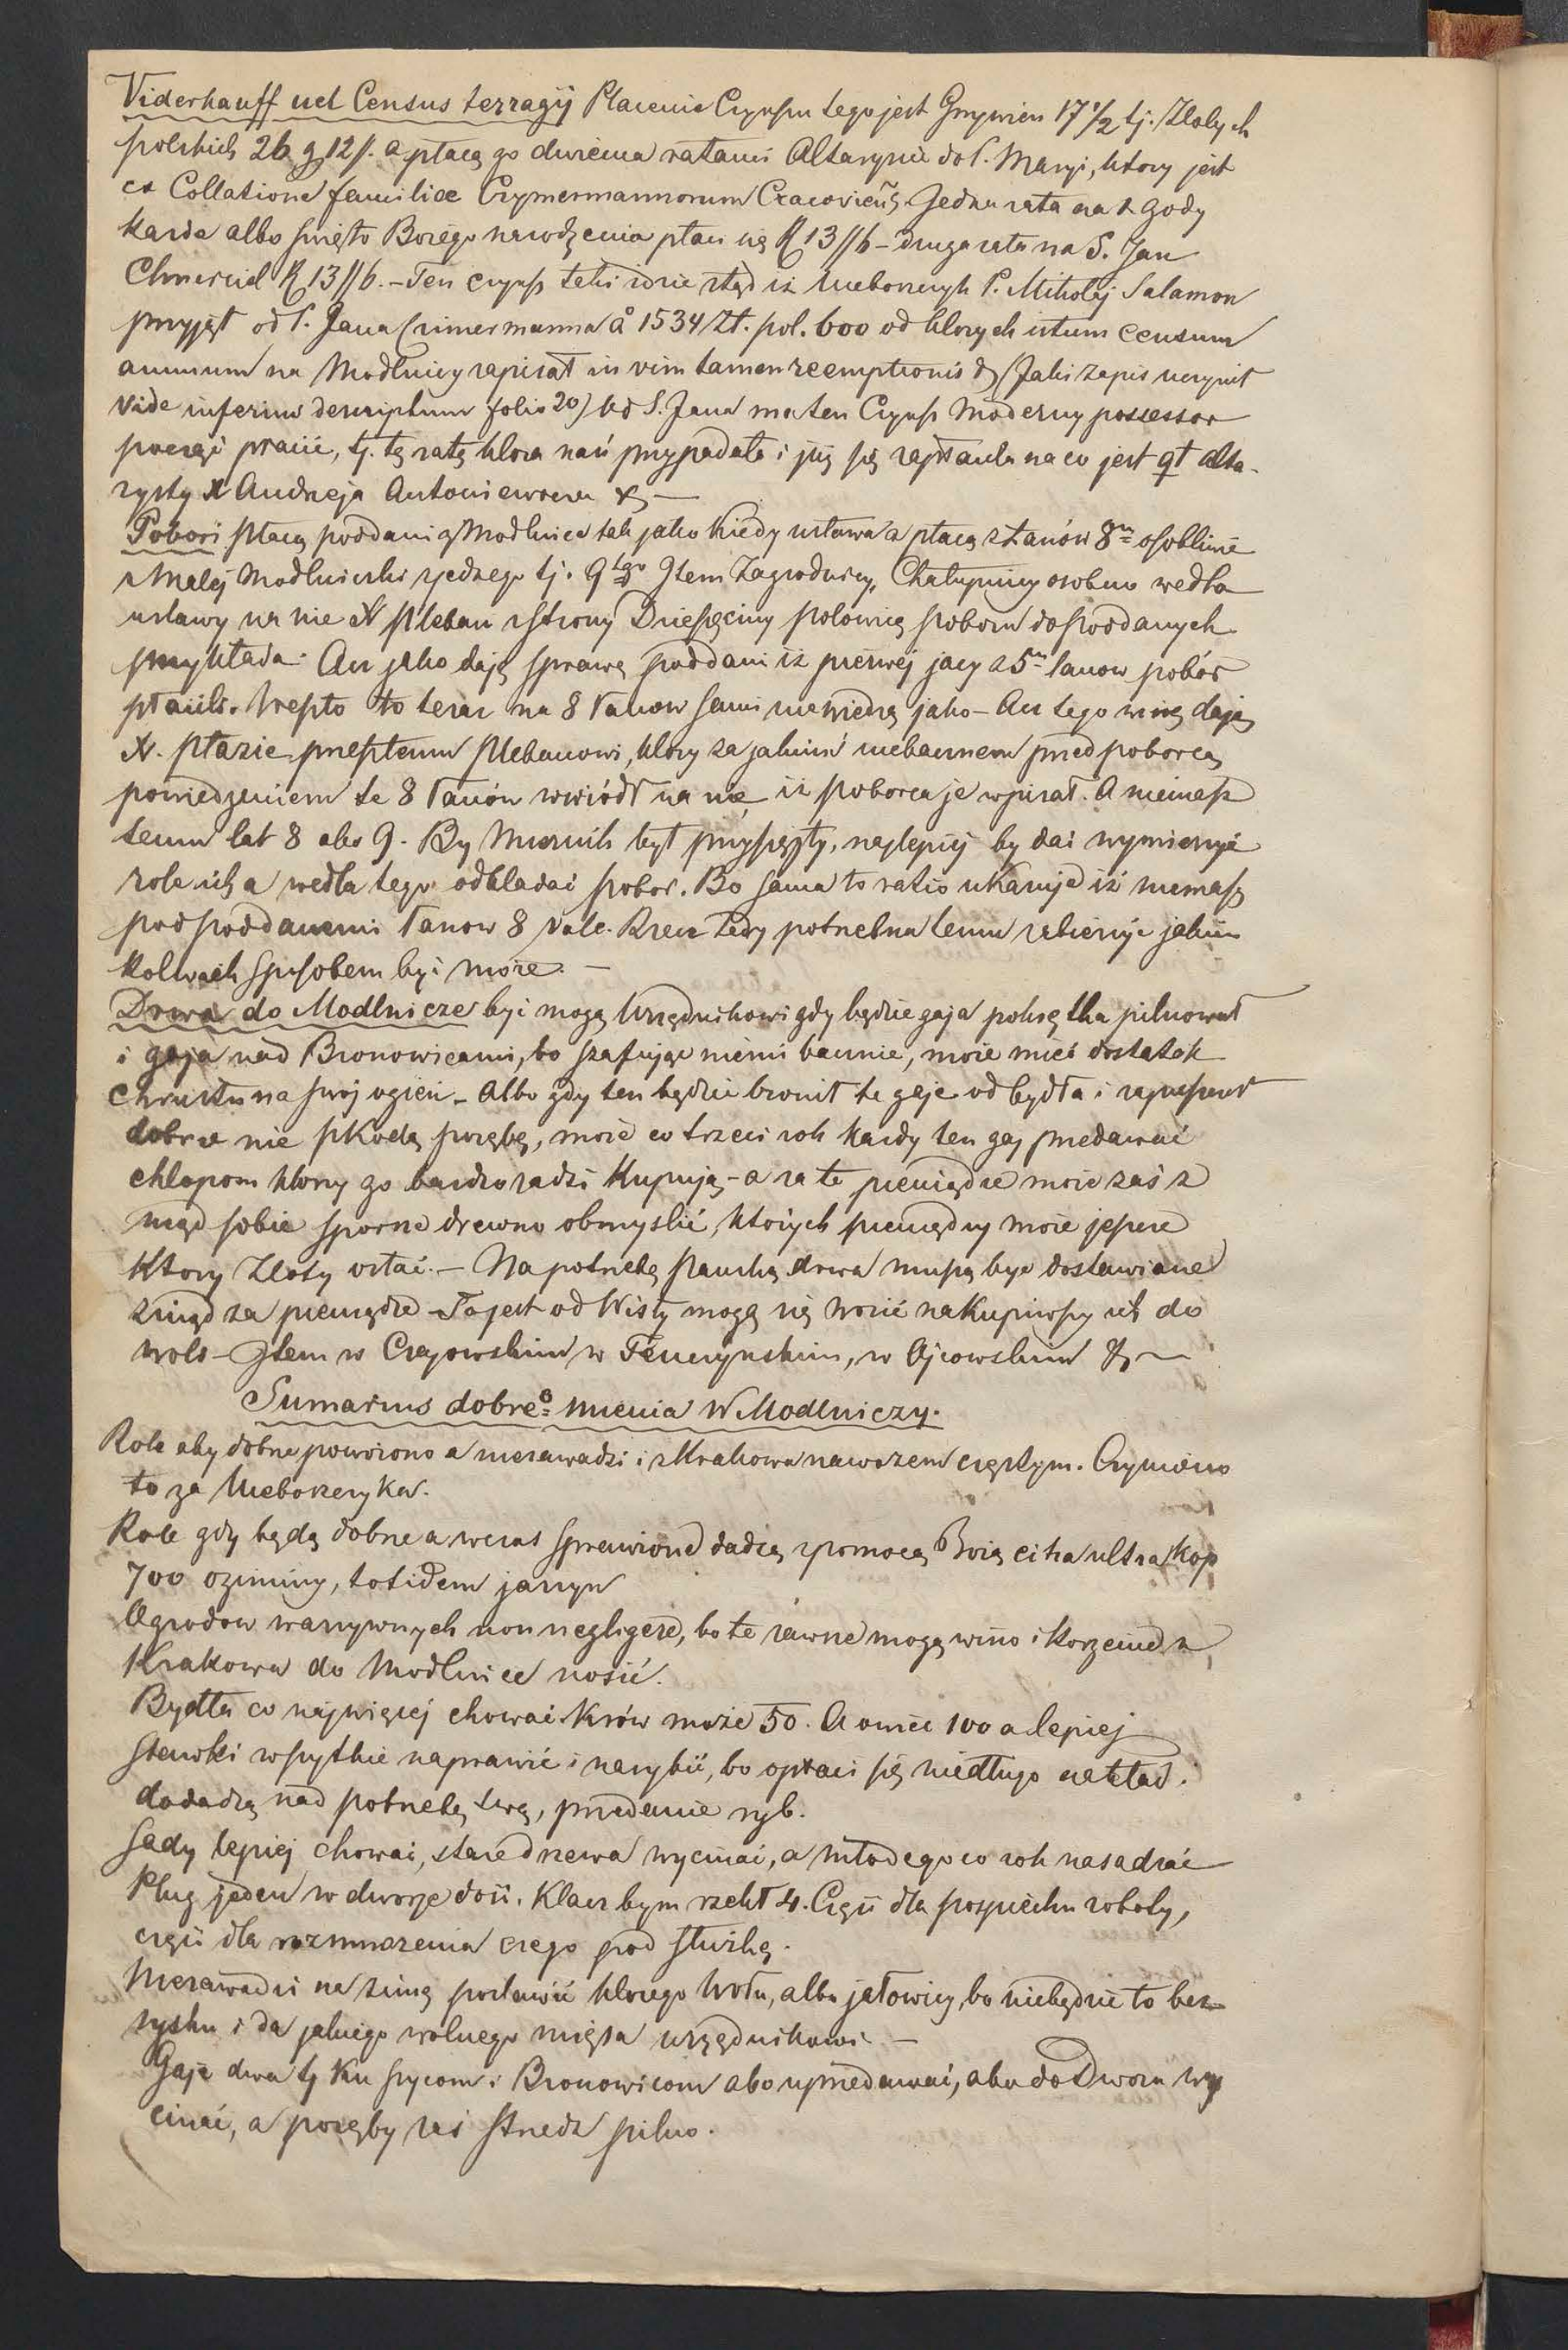 Viderkauff uel Census terragij Placenie Czynszu tego jest Grzywien 17 1/2 tj. Złotych
polskich 26 g 12 ß. a płacą go dwiema ratami Altarzyście do S. Maryi, ktory jest
ex Collatione familiae Czymermannorum Cracovien̄ Jedna rata na Gody
każde albo święto Bożego narodzenia płaci się R 13 ß 6 – druga rata na S. Jan
Chrzciciel R 13 ß 6. – Ten czynsz taki idzie stąd iż nieboszczyk P. Mikołaj Salamon
przyjął od P. Jana Cimermanna aº 1534 Zł. pol. 600 od ktorych istum censum
annuum na Modlnicy zapisał in vim tamen reemptionis & (Jaki zapis uczynił
vide inferius descriptum folio 20) Od S. Jana ma ten Czynsz moderny possessor
począć płacić, tj. tę ratę ktora nań przypadała i już się zapłaciła na co jest qt alta-
rzysty X Andrzeja Antoniewicza &
Pobori płacą poddani z Modlnice tak jako kiedy ustawa a płacą z łanów 8 osobliwie
z Małej Modlniczki z jednego tj. 9go Item Zagrodnicy, Chałupnicy osobno wedla
ustawy na nie X pleban z strony Dziesięciny połowicę poboru do poddanych
przykłada. Acz jako dają sprawę poddani iż pierwej jacy z 5 łanow pobór
płacili. Wszesto to teraz na 8 łanow sami nie wiedzą jako – Acz tego winę dają
X. przeszłemu plebanowi, ktory za jakimś niebacznem przed poborcą
powiedzeniem te 8 łanów wwiódł na nie, iż poborca je wpisał. A niemasz
temu lat 8 abo 9. By Miernik był przysięgły, najlepiej by dać wymierzyć
role ich a wedla tego odkładać pobor. Bo sama to ratio ukazuje iż niemasz
pod poddanemi łanow 8 vale. Rzecz tedy potrzebna temu zabieżyć jakim
kolwiek sposobem być może. –
Drwa do Modlnicze być mogą Urzędnikowi gdy będzie gaja pilnował
i gaja nad Bronowicami, bo szafując niemi bacznie, może mieć dostatek
chrustu na swój ogień – Albo gdy ten będzie bronił te gaje od bydła i zapuszczał
dobrze nie szkodą porębę, może co trzeci rok każdy ten gaj przedawać
chłopom ktory go bardzo radzi kupują – a za te pieniądze może zaś z
nąd sobie sporne drewno obmyslić, ktorych pieniędzy może jeszcze
ktory Złoty ostać. – Na potrzebę pańską drwa muszą być dostawiane
znąd za pieniądze – To jest od Wisły mogą się wozić nakupiwszy ich do
woli – Item w Czajowskim w Tenczynskim, w Ojcowskim & –
Sumarius dobreº mienia W Modlniczy.
Role aby dobrze powożono a niezawadzi i z Krakowa nawozem częstym. Czyniono
to za Nieboszczyka.
Role gdy będą dobrze a wczas sprawione dadzą z pomocą Bożą citra ultra kop
700 oziminy, totidem jarzyn
Ogrodow warzywnych non negligere, bo te żawne mogą wino i korzenie z
Krakowa do Modlnice nosić.
Bydła co najwięcej chować Krów może 50. A owiec 100 a lepiej
Stawki wszytkie naprawić i narybić, bo opłaci się niedługo nakład i
dodadzą nad potrzebę twą, przedanie ryb.
Sady lepiej chować, stare drzewa wycinać, a młodego co rok nasadzać
Pług jeden w dworze dość. Klacz bym rzekł 4. Częś̈cią dla pospiechu roboty,
częścią dla rozmnożenia czego pod służbę.
Niezawadzi na zimę postawić ktorego Wołu, albo jałowicy, bo niebędzie to bez
zysku i da jakiego wolnego mięsa urzędnikowi –
Gaje dwa tj ku Szycom i Bronowicom abo uprzedawać, abo do Dwora wy
cinać, a poręby zaś strzedz pilno.